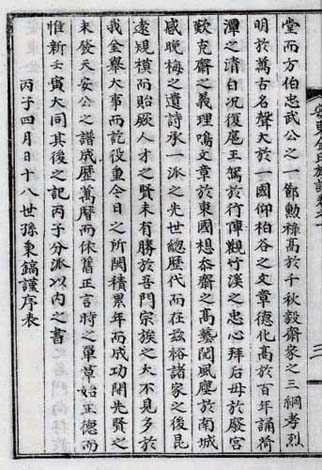 堂而方伯忠武公之一鄭勳祿高於千秋毅齋家之三綱孝烈
明於萬古名聲大於一國仰柏谷之文章德化高於百年誦荷
潭之清白况復扈王駕於行陣觀竹溪之忠心拜后母於廢宮
歎克齋之義理鳴文章於東國想泰齋之高蹈聞風塵於南城
感晩梅之遺詩承一派之先世總歷代而在玆裕諸家之後昆
遠規模而貽厥人才之賢未有勝於吾門宗族之大不見多於
我金擧大事而訖役重今日之所開積累年而成功閉先賢之
未發天安公之譜成歷萬曆而依舊正言時之單草始正德而
惟新壬寅大同其後之記丙子分派以內之書
丙子四月日十八世孫東鎬謹序表
安東金氏族譜卷之一